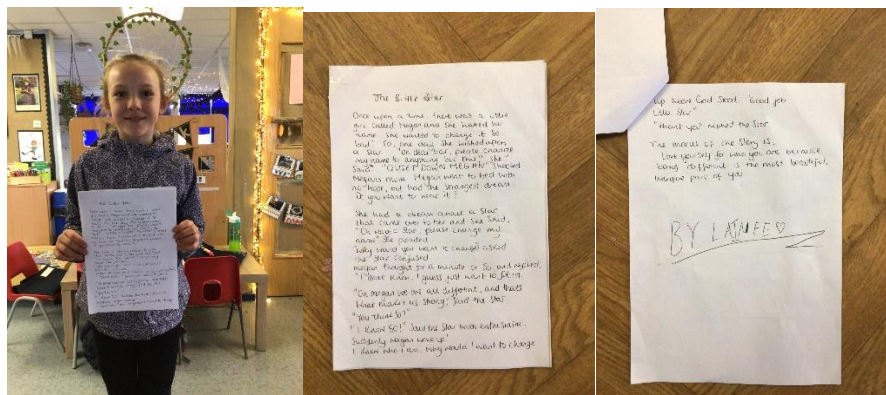 The little Star
Once upon a time, there was a little
girl called Megan and she hated her
name. She wanted to change it so
bad! So, one day she wished upon
a star "Oh dear star, please change
my name to anything but this" she
said. "QUIET DOWN MEGAN" shouted
Megans mum. Megan went to bed with
no hope, but had the strangest dream.
Do you want to hear it?
She had a dream about a star
that came over to her and she said,
"Oh star, please change my
name" she pleaded
"Why would you want it changed" asked
the star confused
Megan thought for a minute or so and replied,
"I don't know, I guess I just want to fit in.
"Oh Megan we are all different, and thats
what makes us strong" said the star
"You think so?"
"I know SO!" said the star with enthusiasm.
Suddenly Megan woke up
I know who I am, why would I want to change
up above God stood. "Good job
little star"
"thank you" replied the star
The moral of the story is,
love yourself for who you are because
being different is the most beautiful,
unique part of you
BY LAINEE